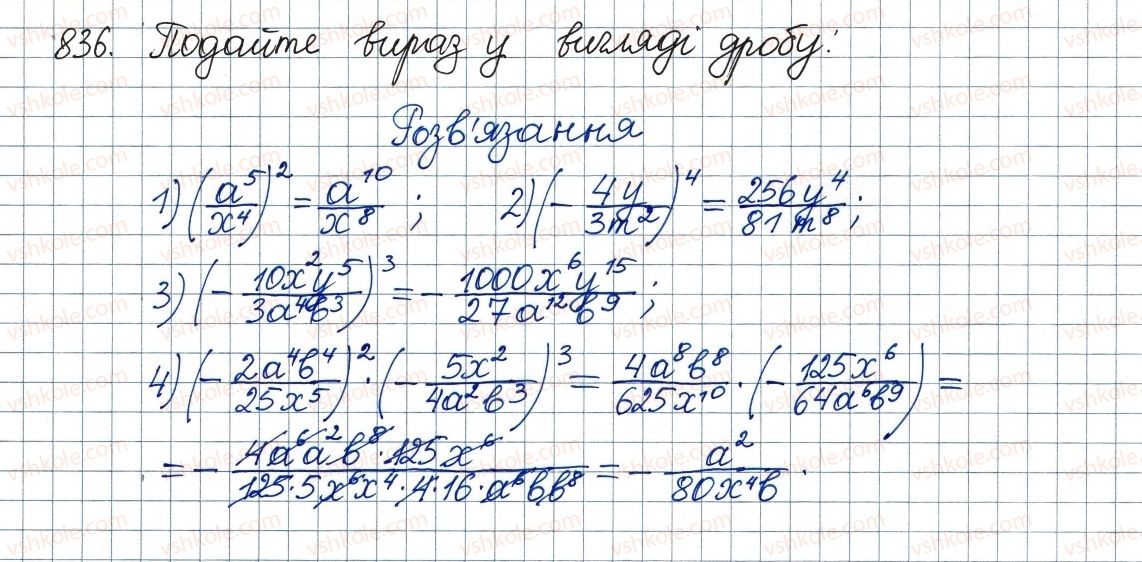 836. Подайте вираз у вигляді дробу:
Розв'язання
1) (a^5/x^4)^2 = a^10/x^8 ; 2) (- 4y/3m^2)^4 = 256y^4/81m^8 ;
3) (- 10x^2y^5/3a^4b^3)^3 = - 1000x^6y^15/27a^12b^9 ;
4) (- 2a^4b^4/25x^5)^2 · (- 5x^2/4a^2b^3)^3 = 4a^8b^8/625x^10 · (- 125x^6/64a^6b^9) =
= - 4a^6a^2b^8·125x^6/125·5x^6x^4·4·16·a^6bb^8 = - a^2/80x^4b .